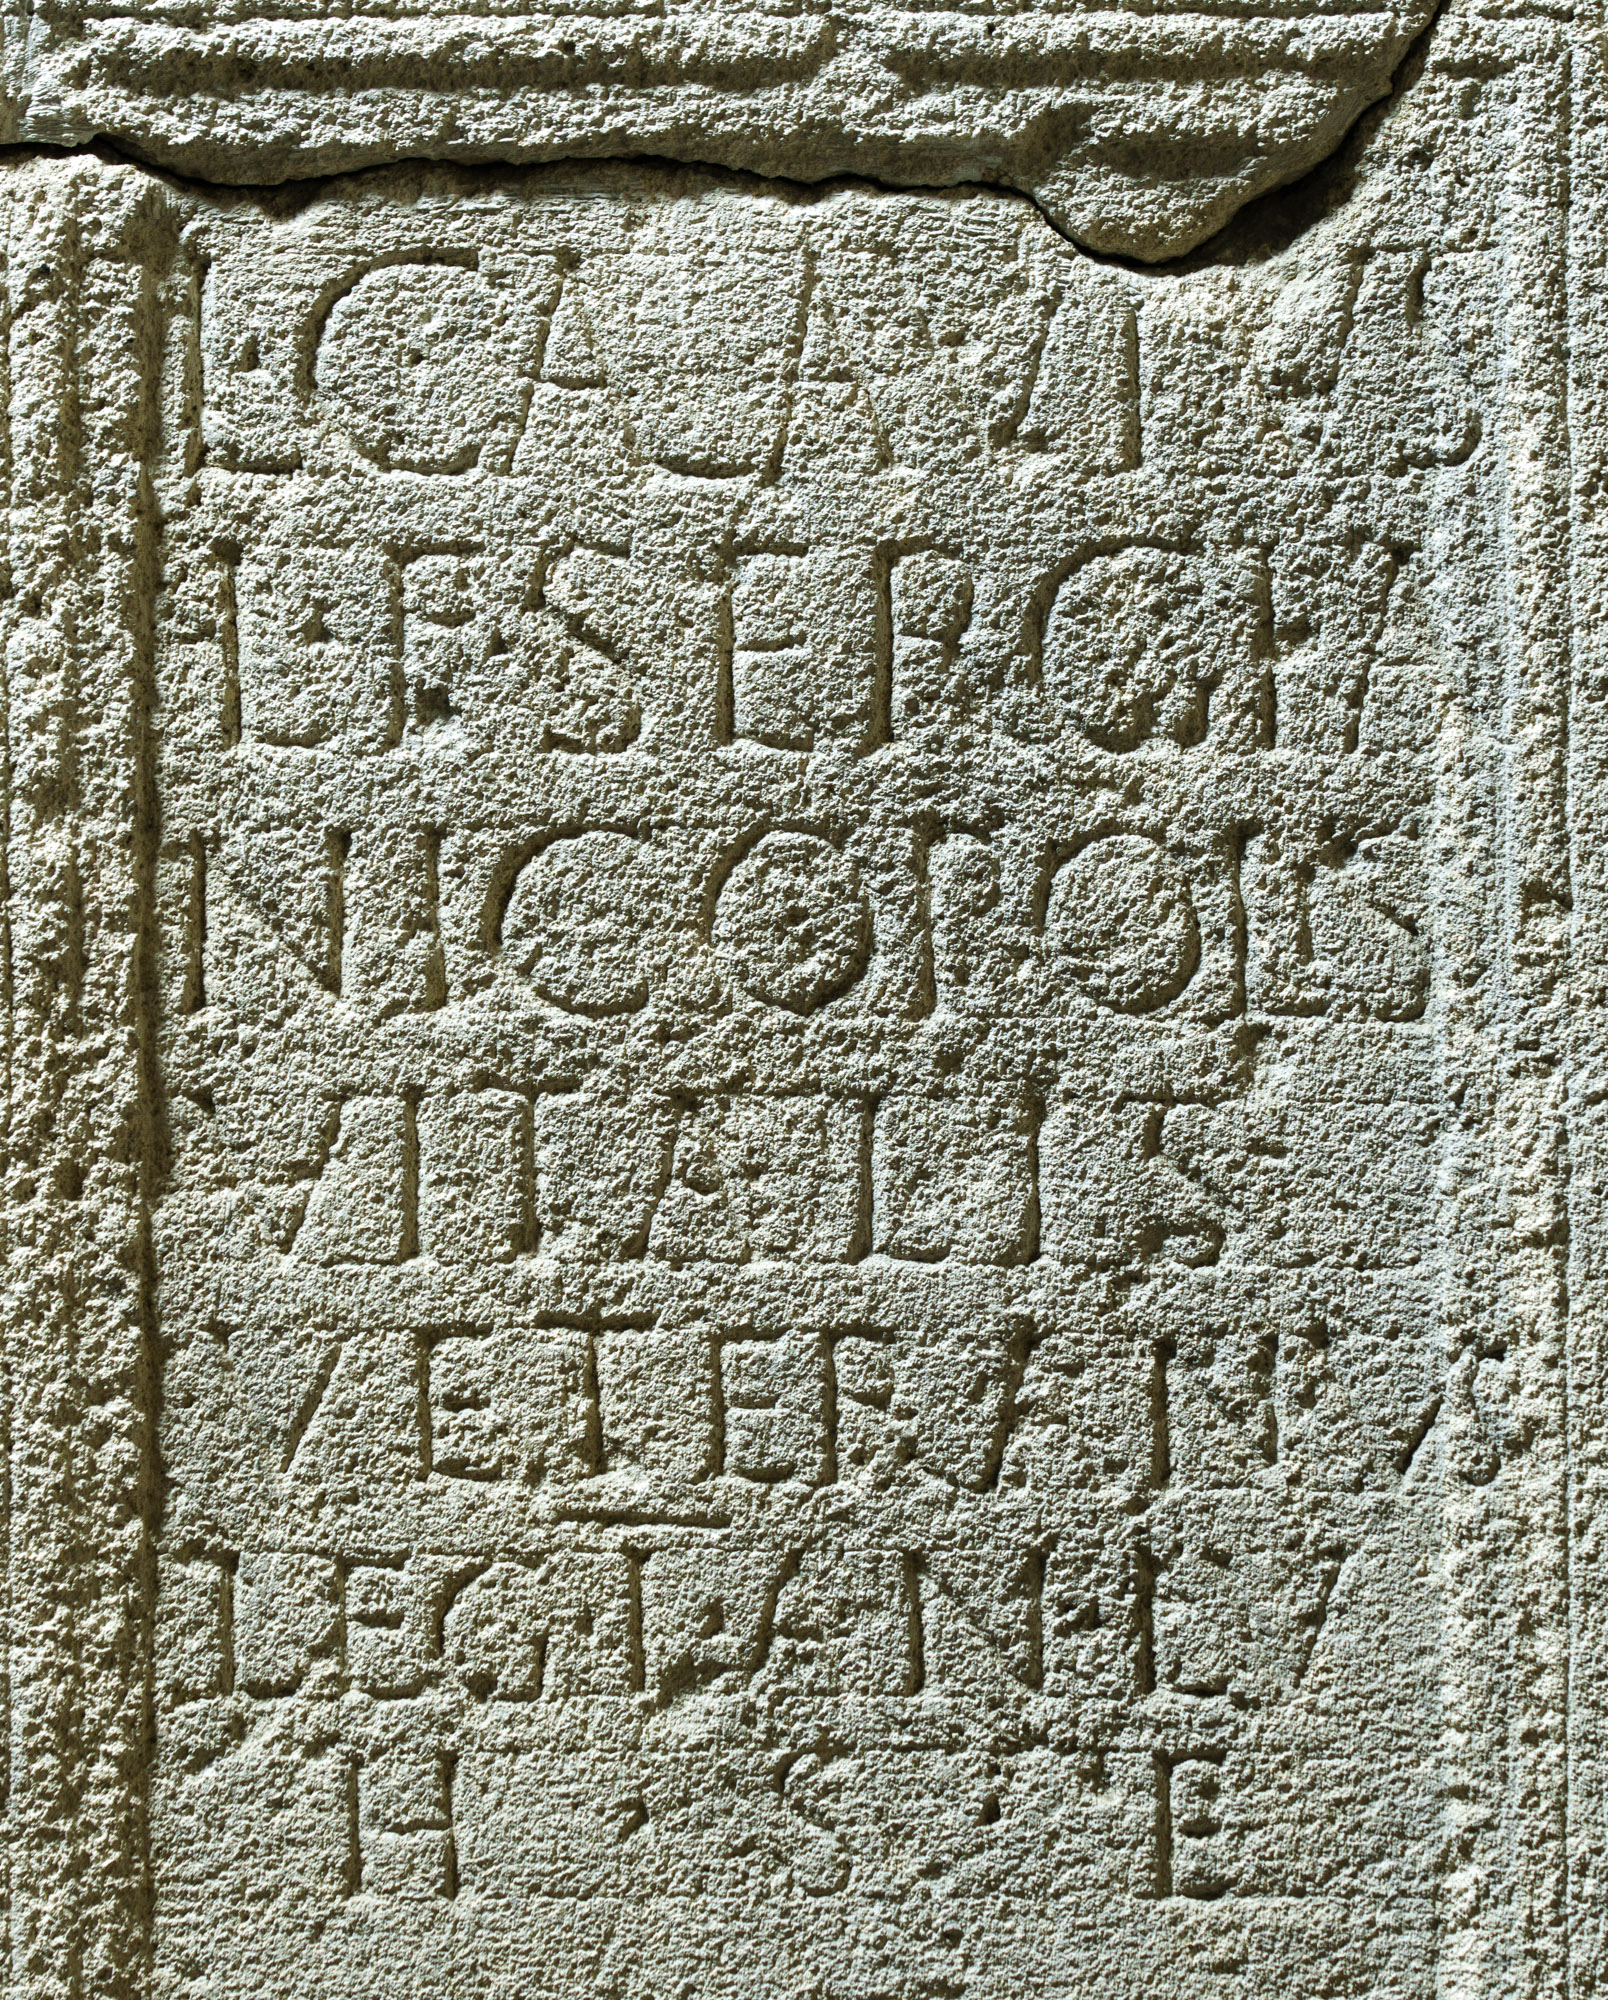 L
L F SERGIA
NICOPOLIS
VITALIS
VETERANVS
LEG ANN LV
H S E